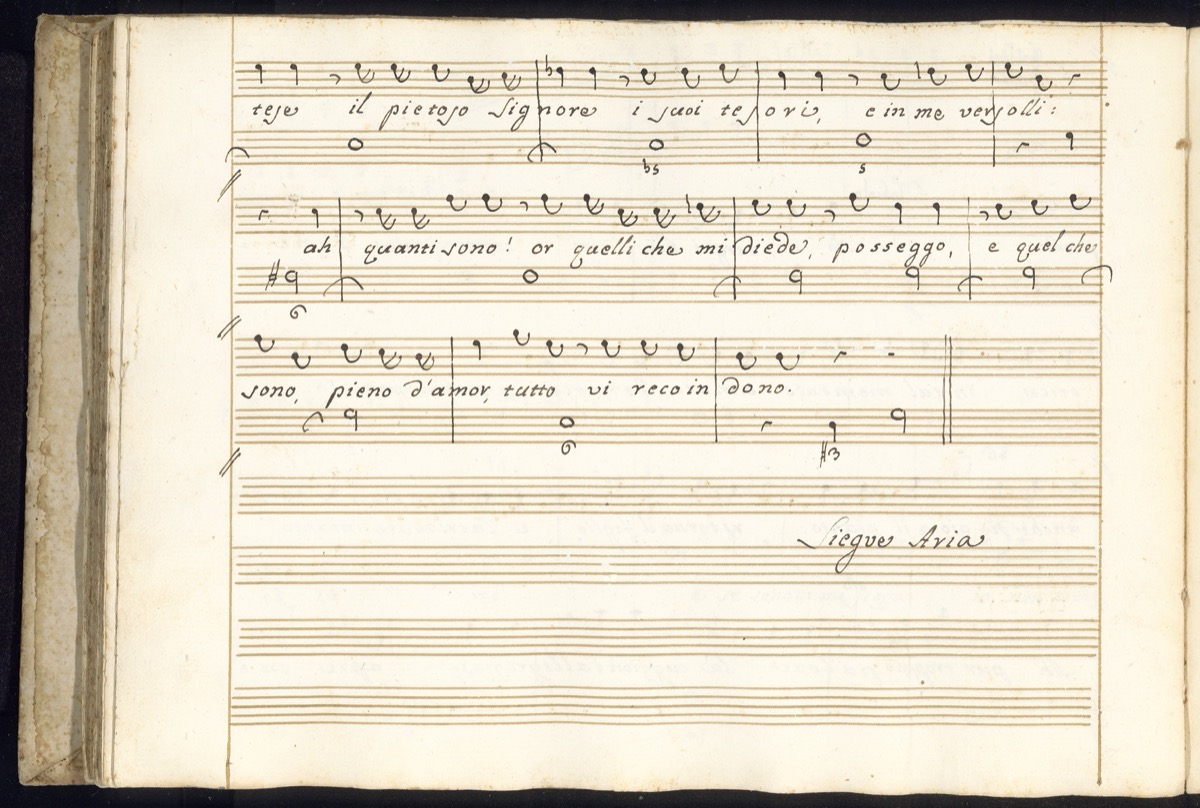 tese il pietoso Signore i suoi tesori, e in me versolli:
b5 5
ah quanti sono! or quelli che mi diede, posseggo, e quel che
6
sono, pieno d'amor, tutto vi reco in dono.
6 #3
Siegue Aria